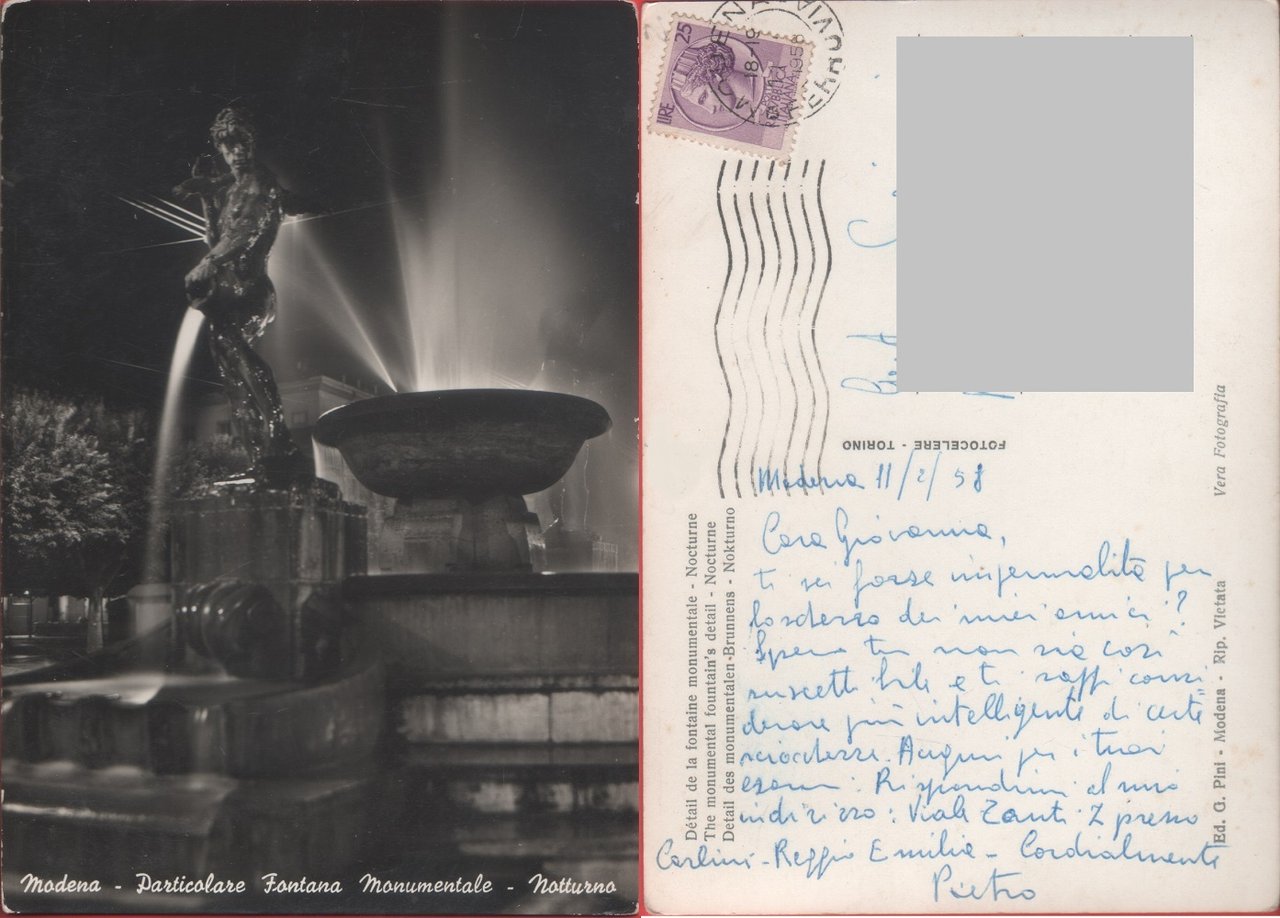 Modena - Particolare Fontana Monumentale - Notturno
MODENA FERROVIA
18-19
1958
LIRE 25
REPUBBLICA
ITALIANA
FOTOCELERE - TORINO
Vera Fotografia
Détail de la fontaine monumentale - Nocturne
The monumental fountain's detail - Nocturne
Detail des monumentalen-Brunnens - Nokturno
Ed. G. Pini - Modena - Rip. Vietata
Modena 11/2/58
Cara Giovanna,
ti sei forse impermalita per
lo scherzo dei miei amici?
Spero tu non sia così
suscettibile e ti saffi consi
derare più intelligente di certe
sciocchezze. Auguri per i tuoi
esami. Rispondimi al mio
indirizzo: Viale Zanti 2 presso
Carlini - Reggio Emilia - Cordialmente
Pietro